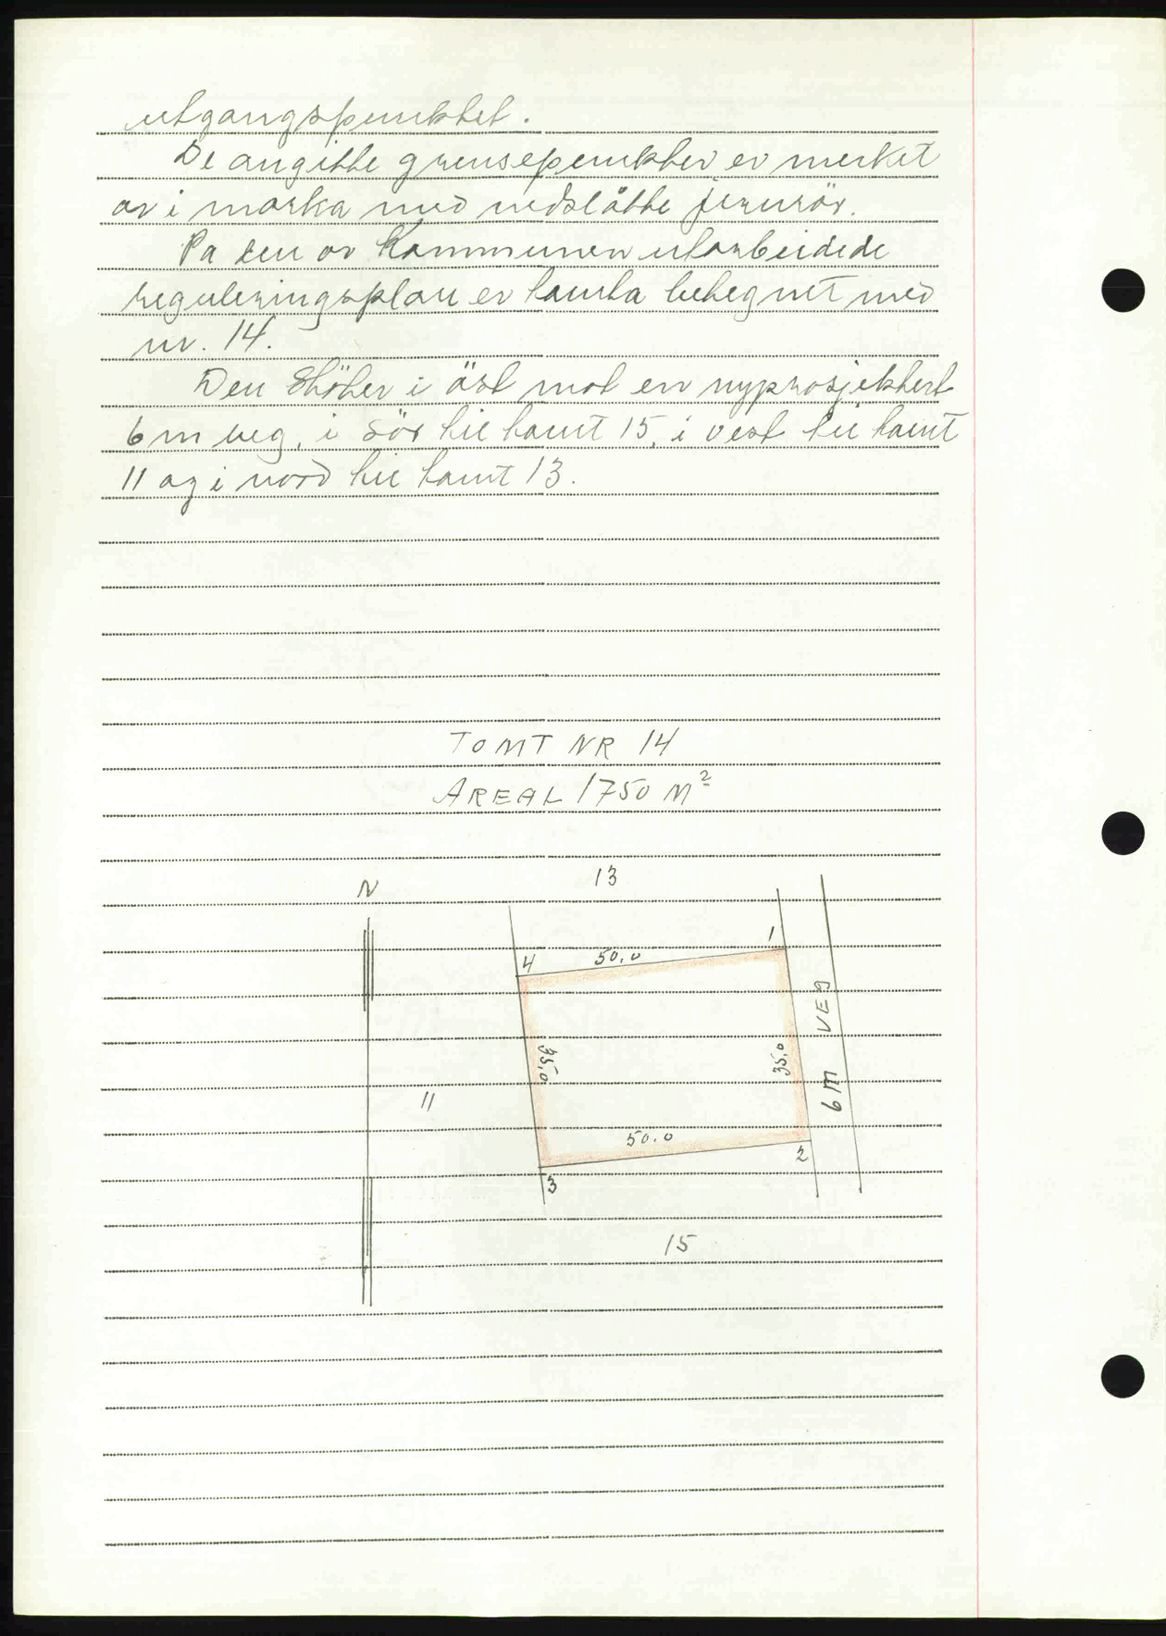 utgangspunktet.
De angitte grensepunkter er merket
av i marka med nedslåtte jernrör.
På den av Kommunen utarbeidede
reguleringsplan er tomta betegnet med
nr. 14.
Den Stöter i öst mot en nyprosjektert
6 m veg, i Sör til tomt 15, i vest til tomt
11 og i nord til tomt 13.
TOMT NR 14
AREAL 1750 M²
13
N
1
4
50,0
VEG
35,0
35,0
6 M
11
50.0
2
3
15